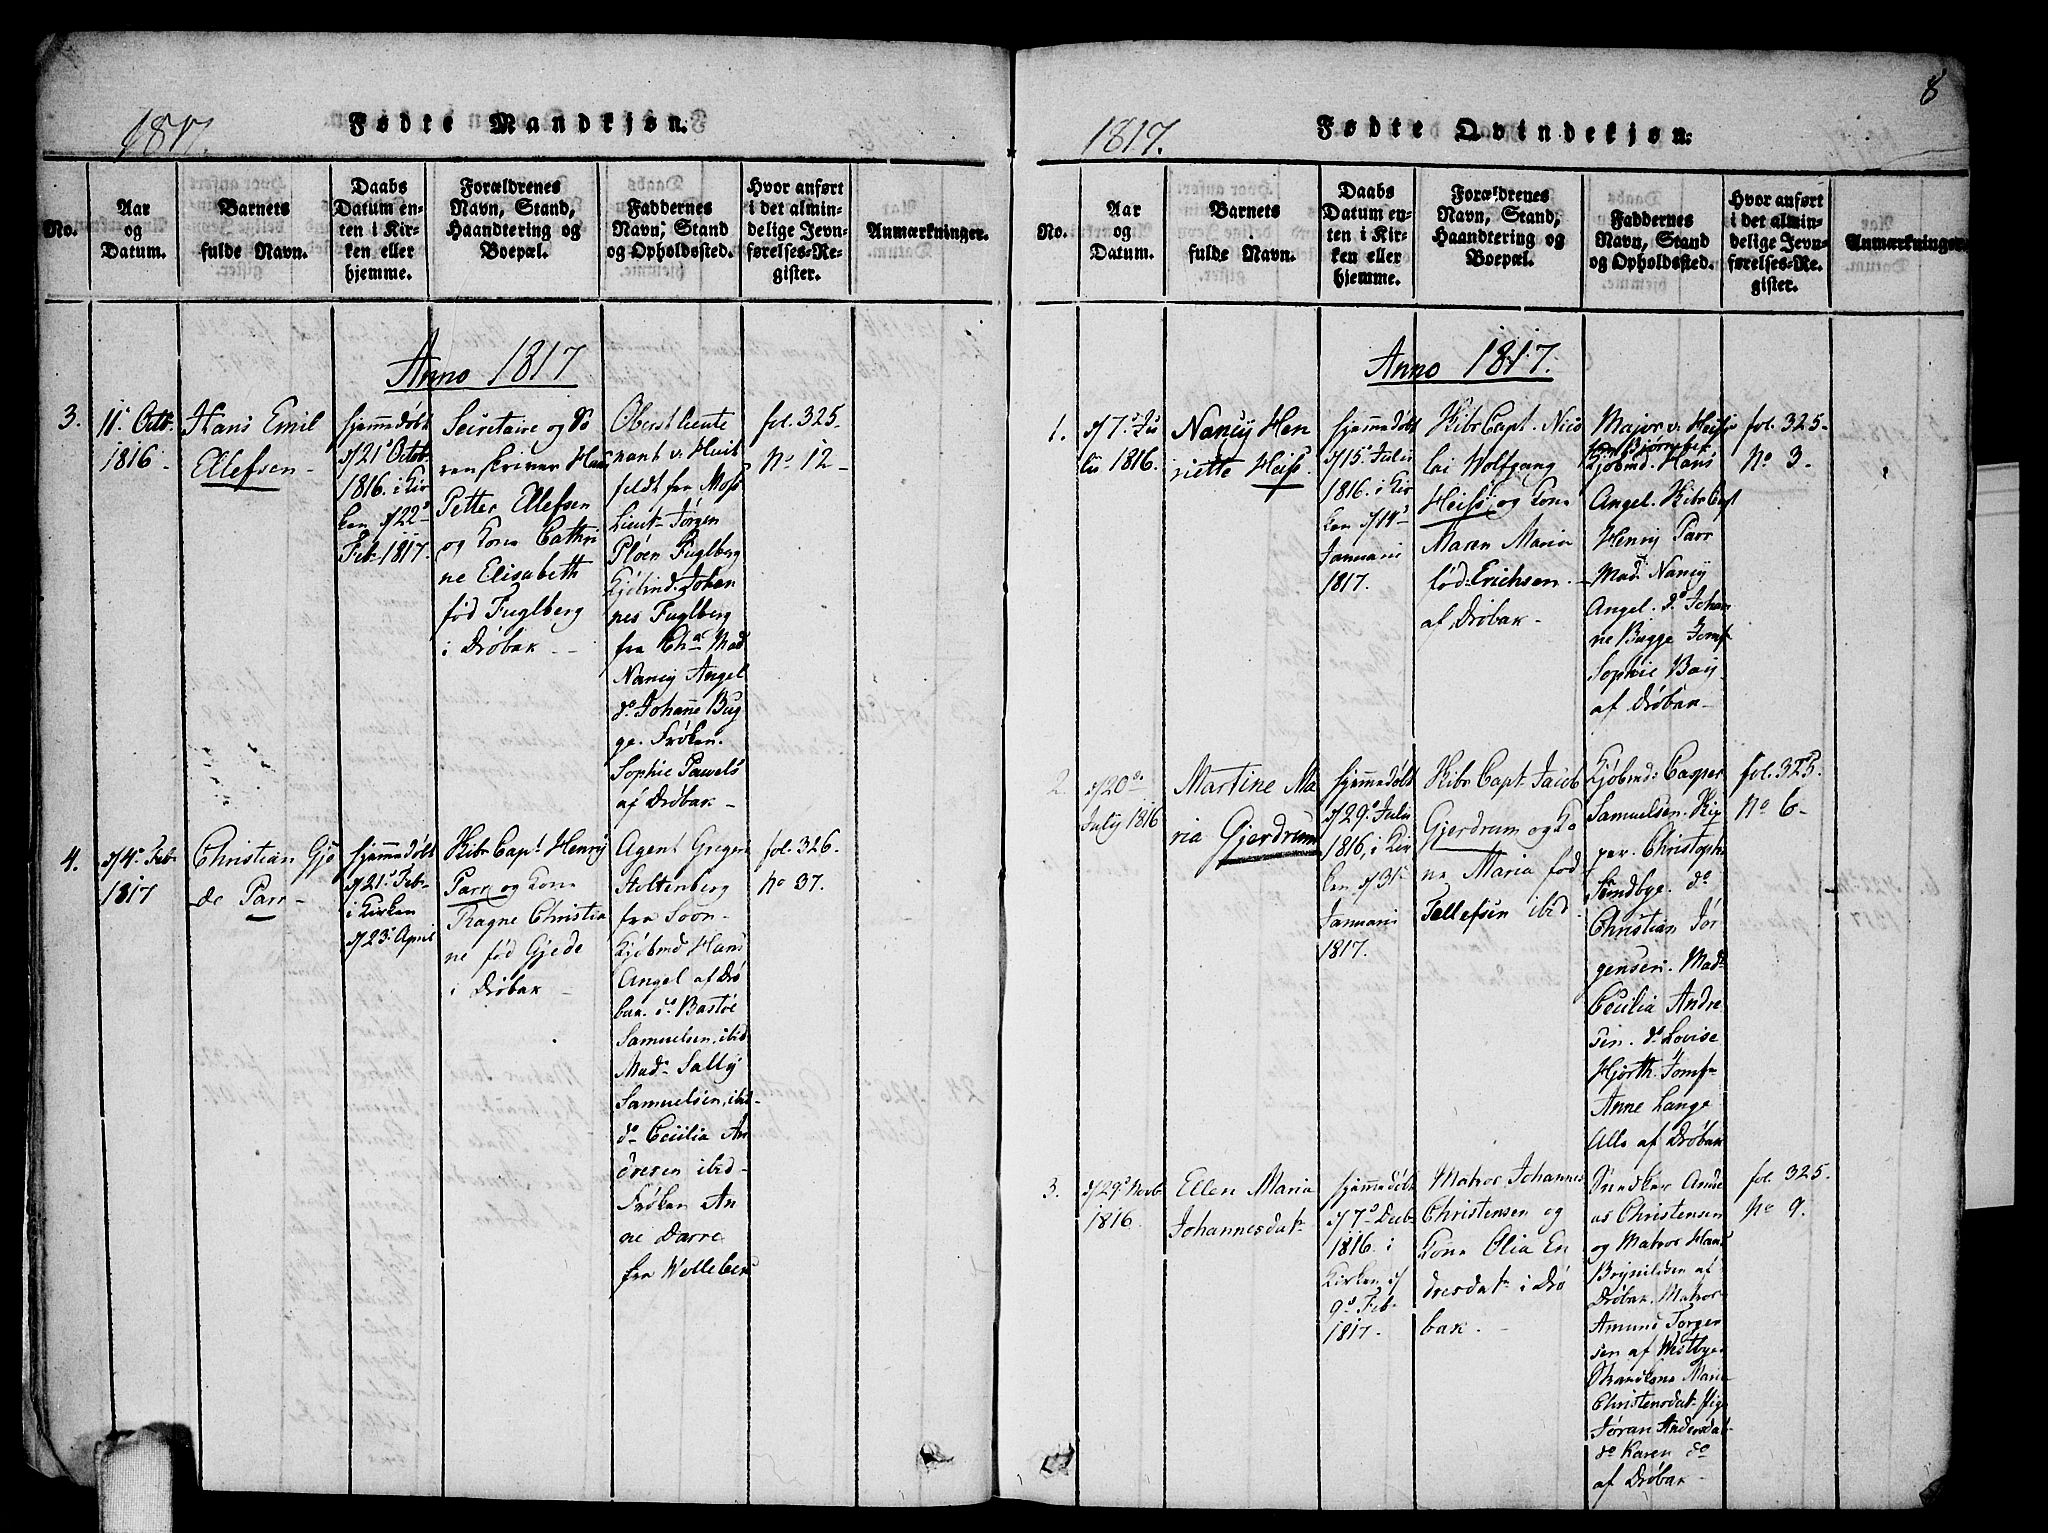 8
1817.
Fødte Mandkjøn.
No.
Aar
og
Datum.
Barnets
fulde Navn.
Daabs
Datum en-
ten i Kir-
ken eller
hjemme.
Forældrenes
Navn, Stand,
Haandtering og
Boepæl.
Faddernes
Navn, Stand
og Opholdssted.
Hvor anført
i det almin-
delige Jevn-
førelses-Re-
gister.
Anmærkninger.
Anno 1817
3.
11. Octb.
1816
Hans Emil
Ellefsen
hjemmedøbt
d/21 Octob
1816. i Kir
ken d/22
Feb. 1817.
Secretaire og So
renskriver Hans
Petter Ellefsen
og Kone Cathri
ne Elisabeth
fød Fuglberg
i Drøbak
Oberstlieute
nant v. Huit
feldt fra Moss
Lieut. Jørgen
Pløen Fuglberg
Kjøbmd. Johan
nes Fuglberg
fra Cha Mad
Nancy Angel
do Johanne Bug
ge. Frøken.
Sophie Pawels
af Drøbak
fol. 325.
No 12
4.
d/4. Feb.
1817
Christian Gjø
de Parr
hjemmedøbt
d/21. Feb.
i Kirken
d/23. April
Skibs Capt. Henry
Parr og Kone
Ragne Christia
ne fød Gjede
i Drøbak
Agent Gregers
Stoltenberg
fra Soon
Kjøbmd Hans
Angel af Drø
bak do Bastøe
Samuelsen, ibid
Mad. Sally
Samuelsen, ibid
do Cecilia An
dresen ibid
Frøken An
ne Darre
fra Wollebek
fol. 326.
No 37.
1817.
Fødte Qvindekjøn.
No.
Aar
og
Datum.
Barnets
fulde Navn.
Daabs
Datum en-
ten i Kir-
ken eller
hjemme.
Forældrenes
Navn, Stand,
Haandtering og
Boepæl.
Faddernes
Navn, Stand
og Opholdssted.
Hvor anført
i det almin-
delige Jevn-
førelses-Re-
gister.
Anmærkninger.
Anno 1817.
1.
d/7. Ju
lii 1816.
Nancy Hen
riette Heiss
hjemmedøbt
d/15 Julii
1816. i Kir
ken d/14
Januarii
1817.
Skibs Capt. Nico
lai Wolfgang
Heiss og Kone
Maren Maria
fød. Erichsen
af Drøbak
Major v. Heiss
Kjøbmd. Hans
Angel. Skibs Capt
Henry Parr
Mad. Nancy
Angel. do Johan
ne Bugge Jomf
Sophie Bay
af Drøbak
fol. 325
No 3.
2.
d/20de
July 1816
Martine Ma
ria Gjerdrum
hjemmedøbt
d/29. Julii
1816, i Kir
ken d/31
Januarii
1817.
Skibs Capt. Jacob
Gjerdrum og Ko
ne Maria fød
Tellefsen ibid
Kjøbmd. Casper
Samuelsen. Skip
per. Christopher
Sundbye. do
Christian Jør
gensen. Mad.
Cecilia Andre
sen. do Lovise
Hjorth. Jomf.
Anne Lange
Alle af Drøbak
fol. 325.
No 6.
3.
d/29. Novb.
1816.
Ellen Maria
Johannesdatr
hjemmedøbt
d/7. Decb.
1816. i
Kirken d/
9. Feb.
1817.
Matros Johannes
Christensen og
Kone Olia En
dresdatr i Drø
bak.
Snedker Andre
as Christensen
og Matros Hans
Brynildsen af
Drøbak. Matros
Amund Torger
sen af Westbye
Christensdatr. Pige
Jøran Andersdatr
do Karen do
af Drøbak
fol. 325.
No 9.